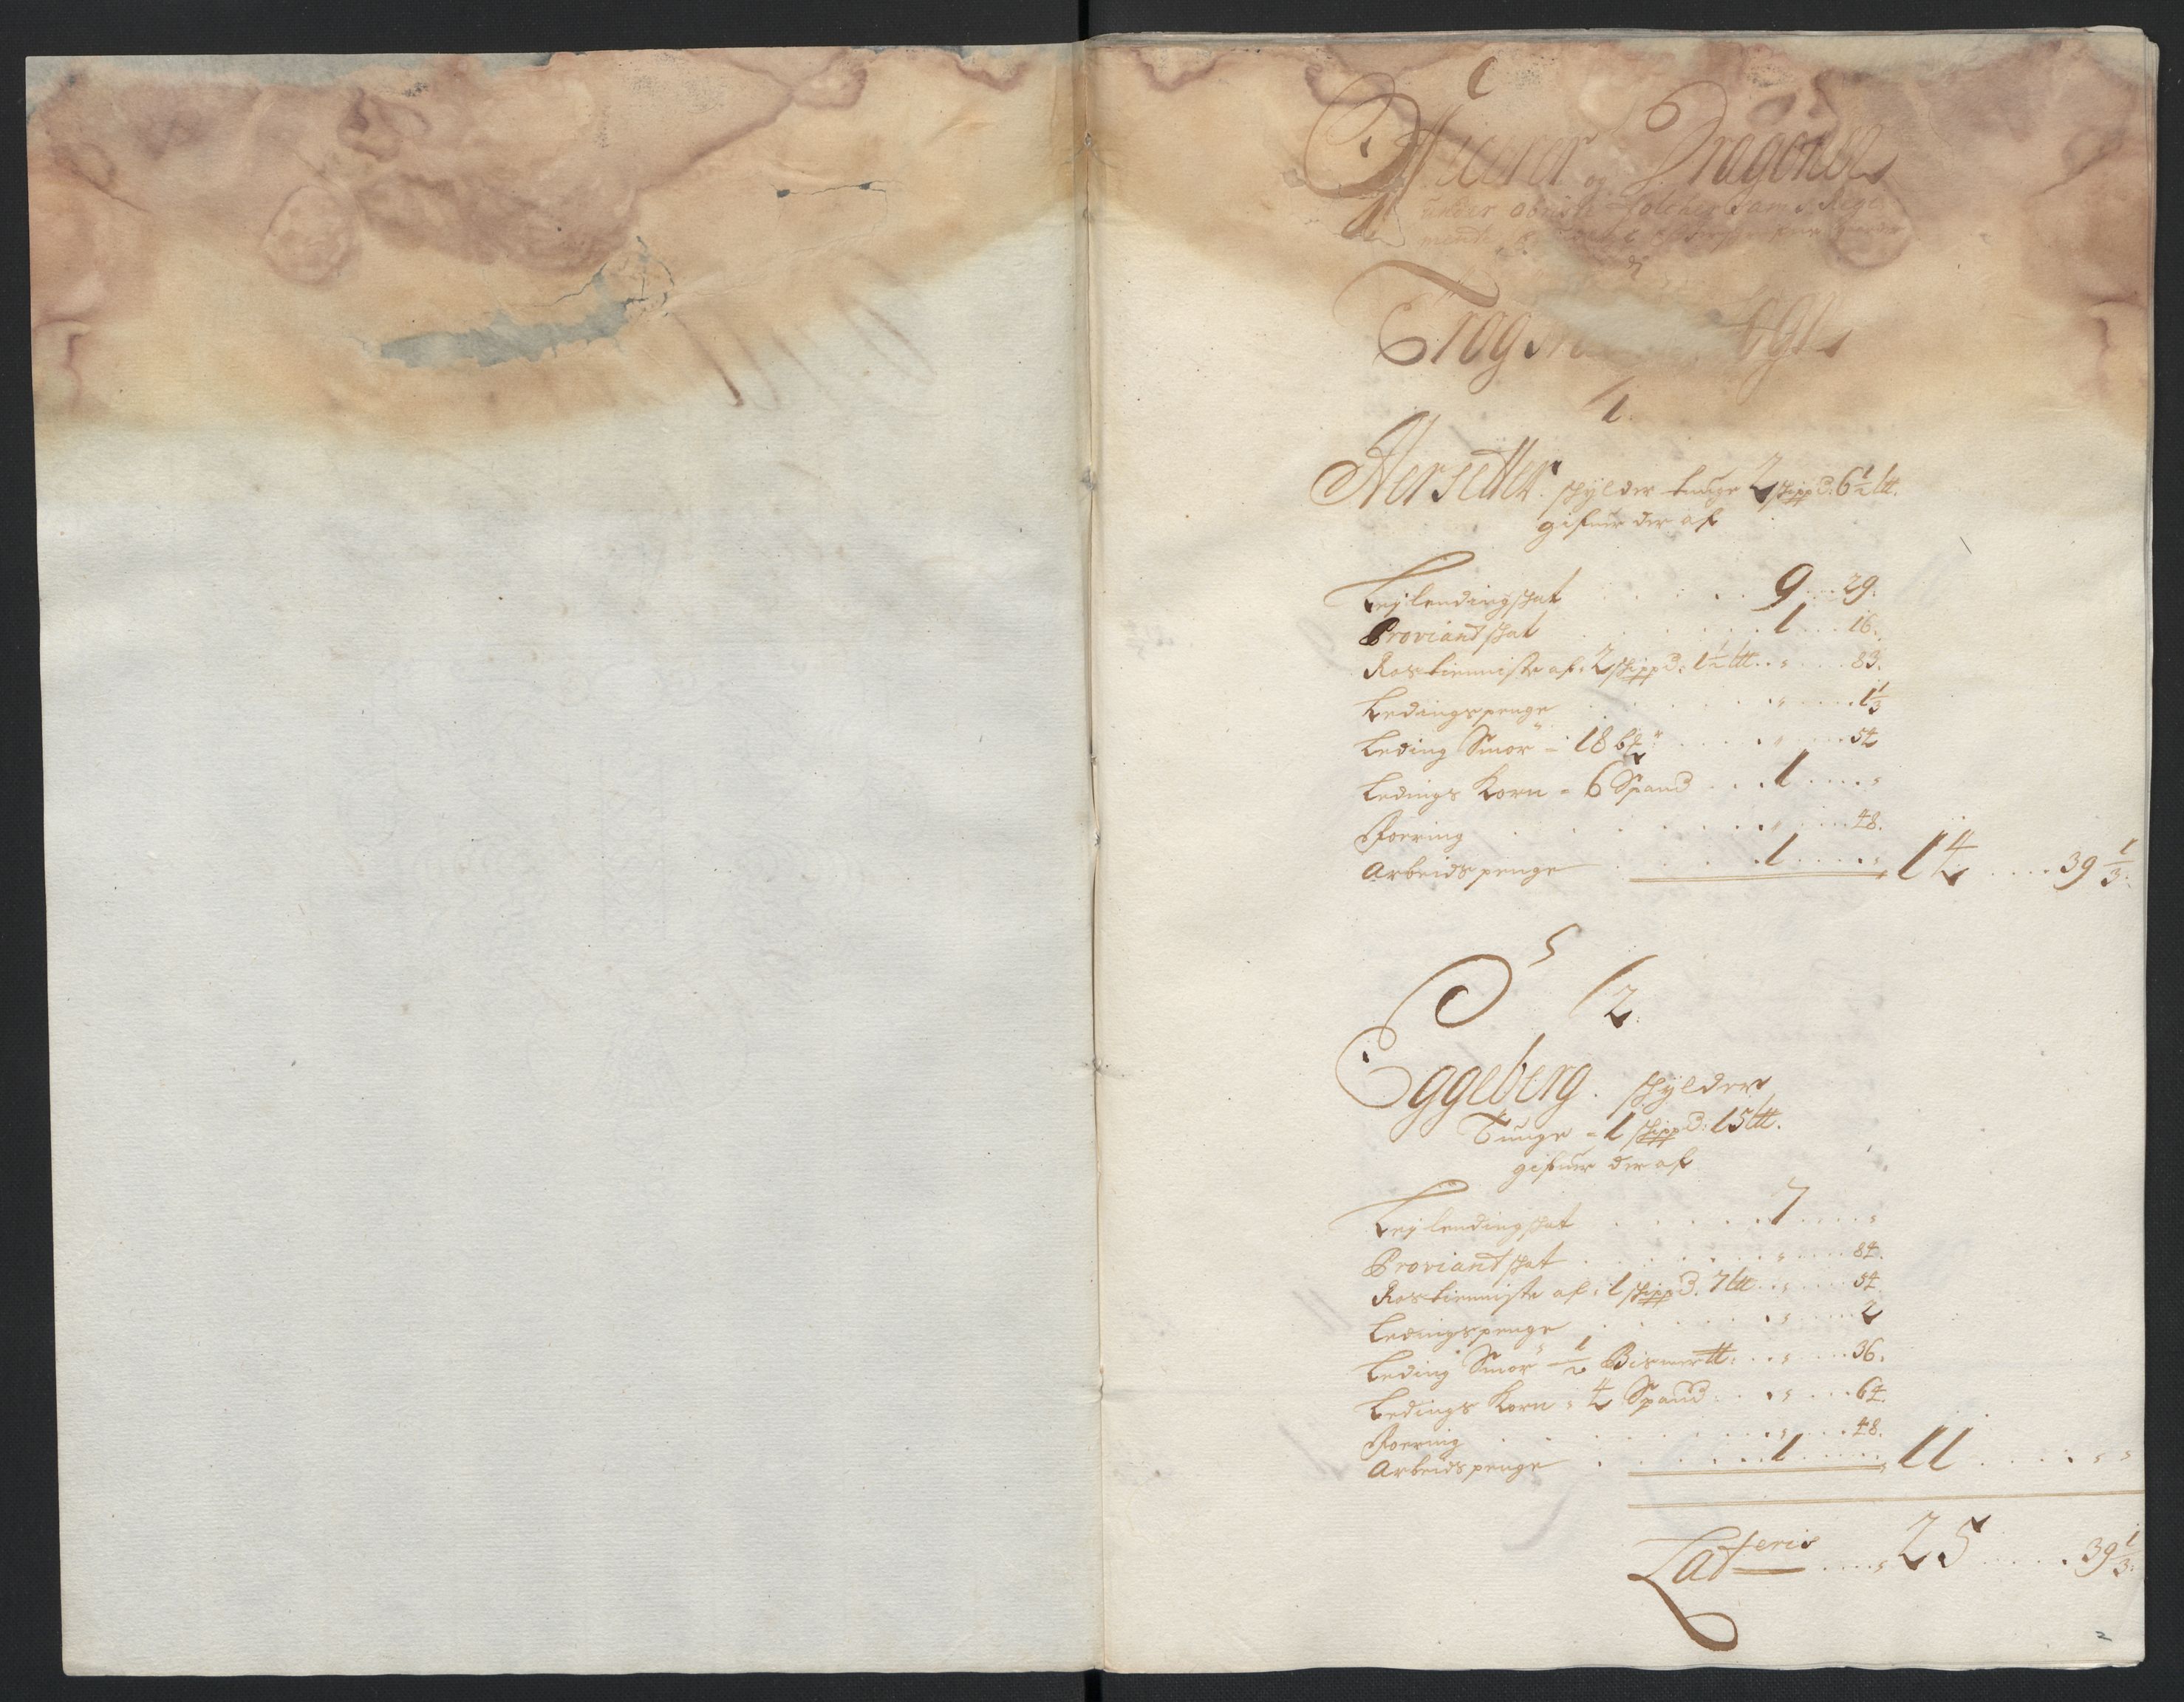 Officerer og Dragoner
under Obrist
1.
Hersetter. skylder tunge 2 skippd: 6½ ltt.
gifuer der af
Leylendingschat 9 .. 29.
Proviantschat 1 ... 16.
Rostienniste af: 2 skippd: 1½ ltt. " .. 83.
Ledingspenge " ... 1⅓
Leding Smør - 18 " ... 54
Ledings Korn - 6 Spand 1 ... "
Foering " ... 48.
Arbeidspenge 1 ... " 14 ... 39⅓:
2.
Eggeberg. skylder
Tunge - 1 skippd: 15 ltt.
gifuer der af
Leylendingschat 7 ... "
Proviantschat " ... 84.
Rostienniste af: 1 skippd. 7 ltt " ... 54
Ledingspenge " ... 2
Leding Smør - ½ Bismertt: " ... 36.
Ledings Korn - 4 Spand " ... 64.
Foering " ... 48.
Arbeidspenge 1 ... " 11 ... "
Lateris ... 25 ... 39⅓:
2